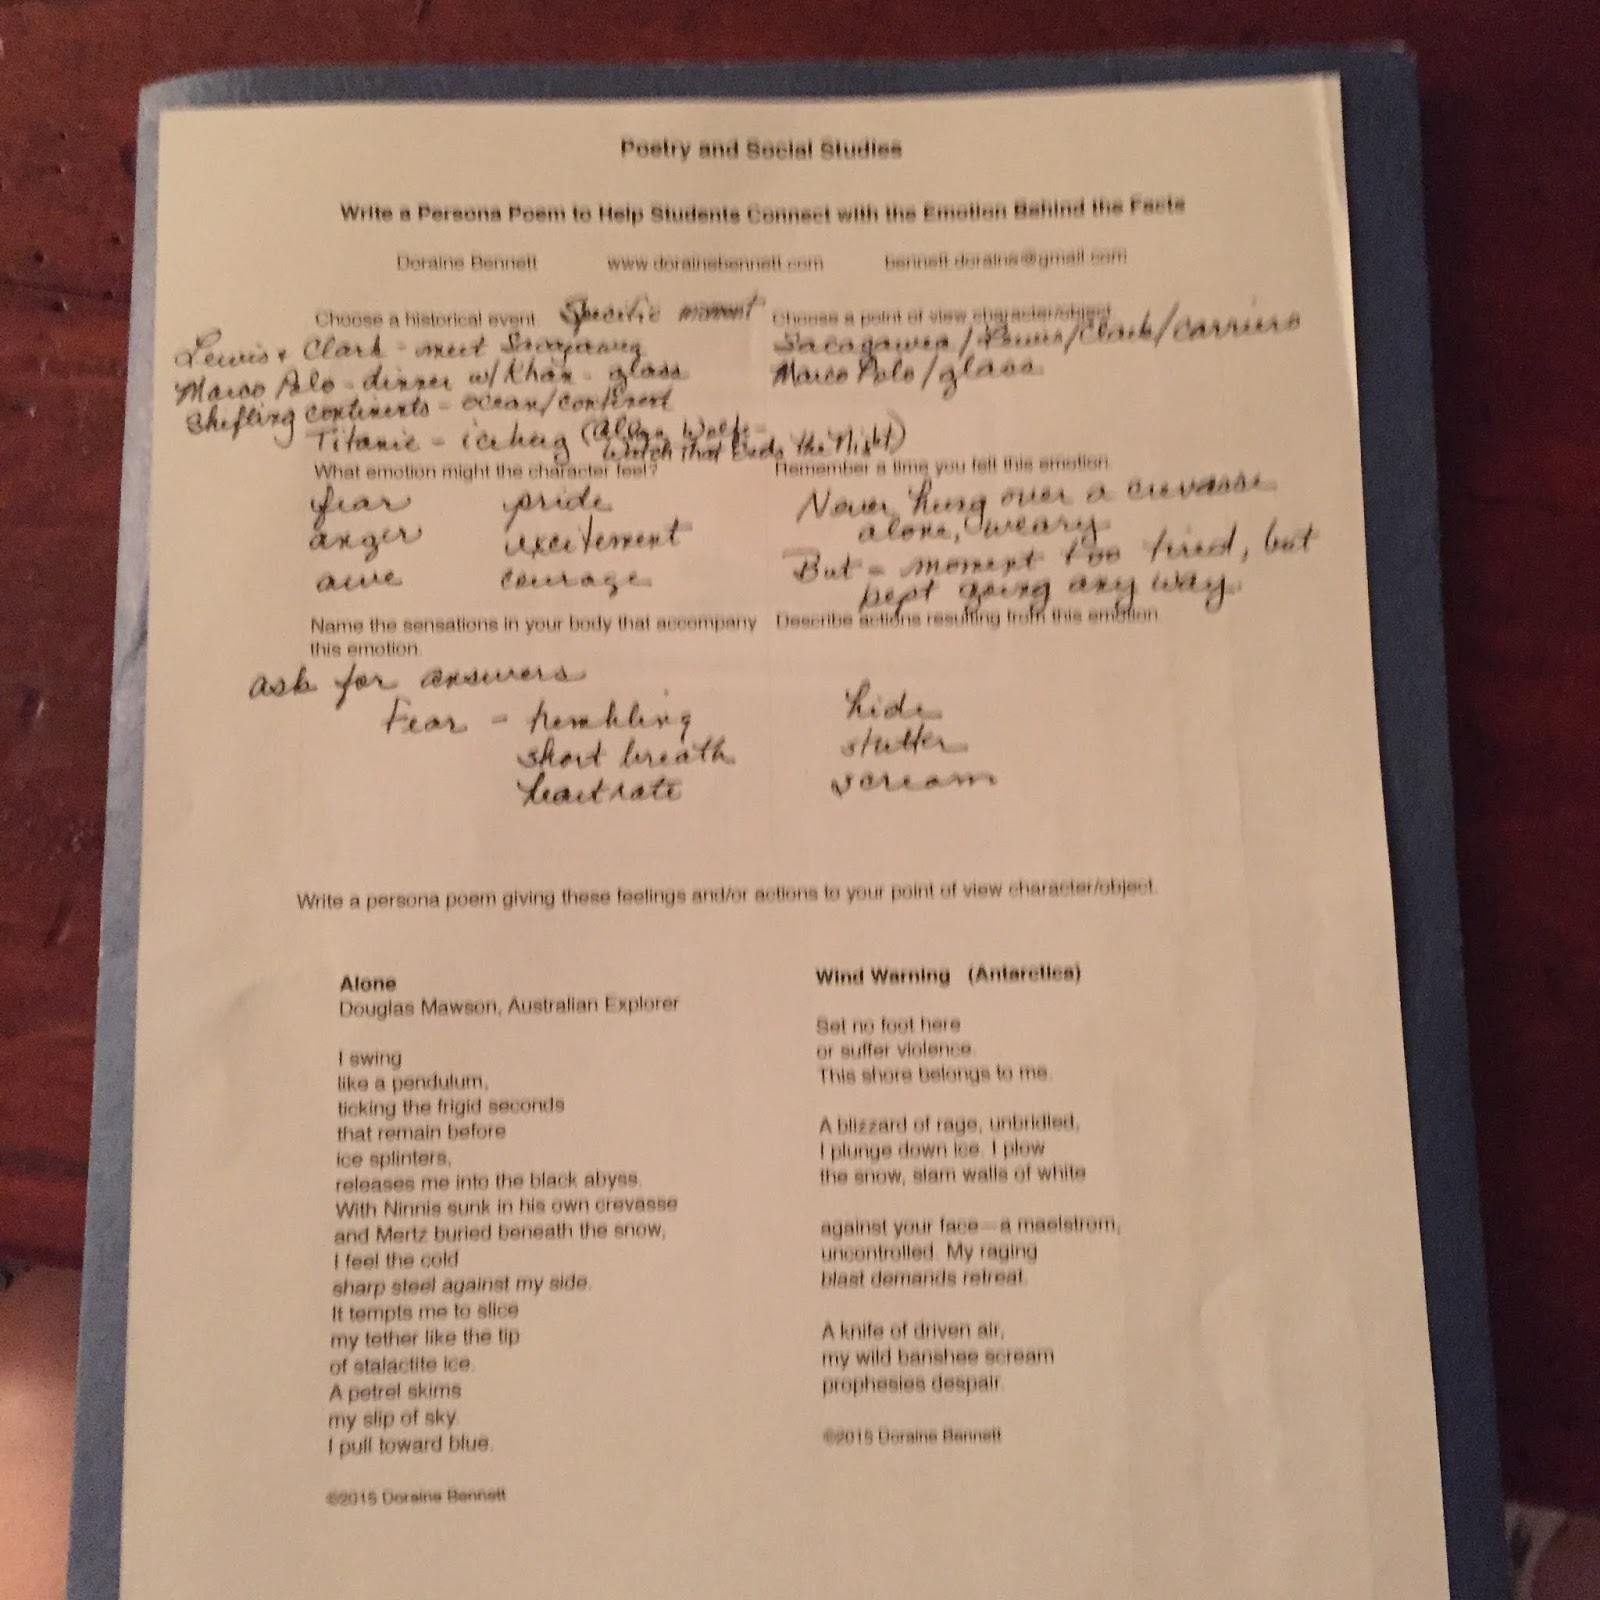 Poetry and Social Studies
Write a Persona Poem to Help Students Connect with the Emotion Behind the Facts
Doraine Bennett www.dorainebennett.com bennett.doraine@gmail.com
Choose a historical event. Specific moment
Lewis + Clark - meet Sacagawea
Marco Polo - dinner w/ Khan - glass
Shifting continents - ocean/continent
Titanic - iceberg (Allan Wolfe -
Watch that Ends the Night)
Choose a point of view character/object
Sacagawea/Lewis/Clark/carriers
Marco Polo/glass
What emotion might the character feel?
fear pride
anger excitement
awe courage
Remember a time you felt this emotion.
Never hung over a crevasse
alone, weary
But - moment too tired, but
kept going any way.
Name the sensations in your body that accompany
this emotion.
ask for answers
Fear - trembling
short breath
heart rate
Describe actions resulting from this emotion.
hide
stutter
scream
Write a persona poem giving these feelings and/or actions to your point of view character/object.
Alone
Douglas Mawson, Australian Explorer
I swing
like a pendulum,
ticking the frigid seconds
that remain before
ice splinters,
releases me into the black abyss.
With Ninnis sunk in his own crevasse
and Mertz buried beneath the snow,
I feel the cold
sharp steel against my side.
It tempts me to slice
my tether like the tip
of stalactite ice.
A petrel skims
my slip of sky.
I pull toward blue.
©2015 Doraine Bennett
Wind Warning (Antarctica)
Set no foot here
or suffer violence.
This shore belongs to me.
A blizzard of rage, unbridled,
I plunge down ice. I plow
the snow, slam walls of white
against your face—a maelstrom,
uncontrolled. My raging
blast demands retreat.
A knife of driven air,
my wild banshee scream
prophesies despair.
©2015 Doraine Bennett